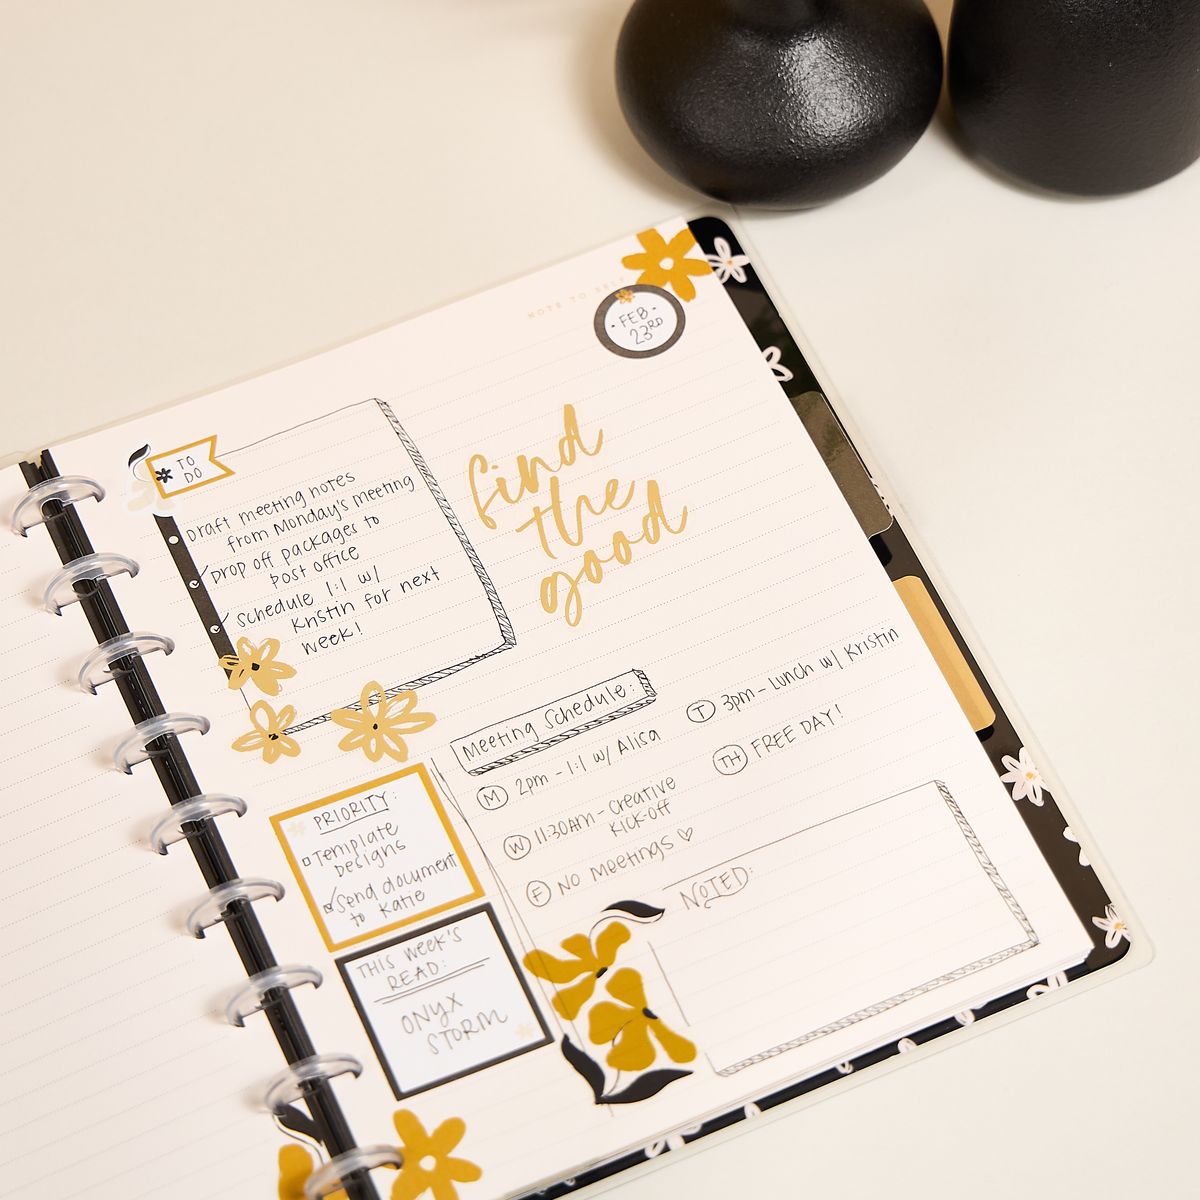 NOTE TO SELF
FEB
23RD
TO
DO
Draft meeting notes
from Monday's meeting
Drop off packages to
post office
Schedule 1:1 w/
Kristin for next
week!
find
the
good
Meeting Schedule:
M 2pm - 1:1 w/ Alisa
T 3pm - Lunch w/ Kristin
W 11:30AM - Creative
Kick-off
TH FREE DAY!
F No Meetings ♡
PRIORITY:
Template
Designs
Send document
to Katie
THIS WEEK'S
READ:
ONYX
STORM
NOTED: